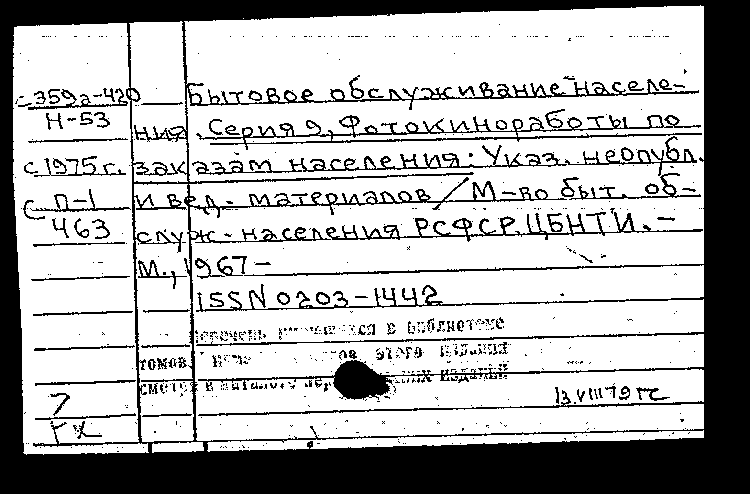 с359а-420 Бытовое обслуживание населе-
Н-53 ния. Серия 9, Фотокиноработы по
с 1975 г. заказам населения: Указ. неопубл.
с П-1 и вед. материалов / М-во быт. об-
463 служ. населения РСФСР. ЦБНТИ. –
М., 1967 –
ISSN 0203-1442
перечень в библиотеке
томов, этого издания
смотри в каталоге изданий
13.VIII 79 гс
7
гх